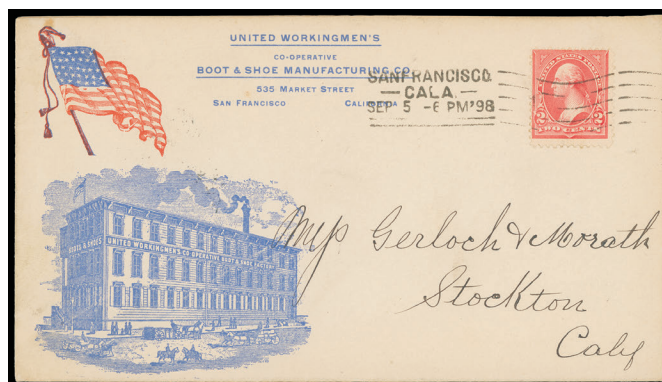 UNITED WORKINGMEN'S
CO-OPERATIVE
BOOT & SHOE MANUFACTURING CO.
535 MARKET STREET
SAN FRANCISCO CALIFORNIA
SAN FRANCISCO.
— CALA. —
SEP 5 -6 PM '98
2 TWO CENTS 2
BOOTS & SHOES
UNITED WORKINGMEN'S CO OPERATIVE BOOT & SHOE FACTORY
Gerloch & Morath
Stockton
Calif